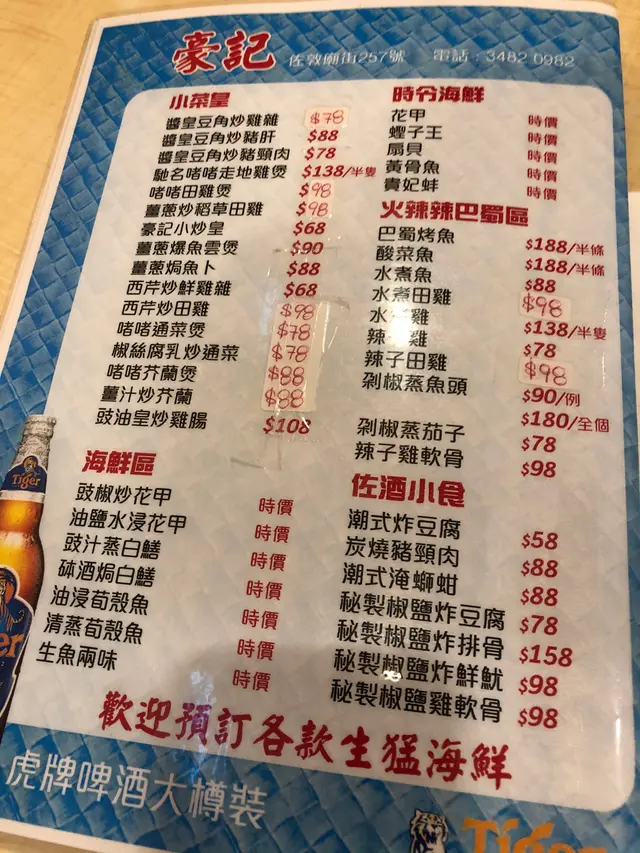 豪記 佐敦廟街257號 電話：3482 0982
小菜皇
醬皇豆角炒雞雜 $78
醬皇豆角炒豬肝 $88
醬皇豆角炒豬頸肉 $78
馳名啫啫走地雞煲 $138/半隻
啫啫田雞煲 $98
薑蔥炒稻草田雞 $98
豪記小炒皇 $68
薑蔥爆魚雲煲 $90
薑蔥焗魚卜 $88
西芹炒鮮雞雜 $68
西芹炒田雞 $98
啫啫通菜煲 $78
椒絲腐乳炒通菜 $78
啫啫芥蘭煲 $88
薑汁炒芥蘭 $88
豉油皇炒雞腸 $108
海鮮區
豉椒炒花甲 時價
油鹽水浸花甲 時價
豉汁蒸白鱔 時價
砵酒焗白鱔 時價
油浸荀殼魚 時價
清蒸荀殼魚 時價
生魚兩味 時價
時令海鮮
花甲 時價
蟶子王 時價
扇貝 時價
黃骨魚 時價
貴妃蚌 時價
火辣辣巴蜀區
巴蜀烤魚 $188/半條
酸菜魚 $188/半條
水煮魚 $88
水煮田雞 $98
水 雞 $138/半隻
辣 雞 $78
辣子田雞 $98
剁椒蒸魚頭 $90/例
$180/全個
剁椒蒸茄子 $78
辣子雞軟骨 $98
佐酒小食
潮式炸豆腐 $58
炭燒豬頸肉 $88
潮式淹螄蚶 $88
秘製椒鹽炸豆腐 $78
秘製椒鹽炸排骨 $158
秘製椒鹽炸鮮魷 $98
秘製椒鹽雞軟骨 $98
歡迎預訂各款生猛海鮮
虎牌啤酒大樽裝
Tiger
Tiger